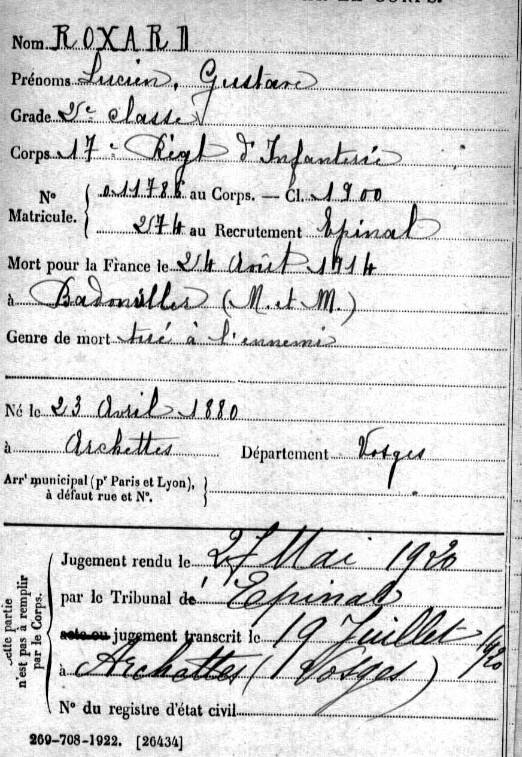 Nom ROXARD
Prénoms Lucien, Gustave
Grade 2e classe
Corps 17e Régt d'Infanterie
No Matricule. 011786 au Corps. — Cl. 1900
274 au Recrutement Epinal
Mort pour la France le 24 Août 1914
à Badonviller (M. et M.)
Genre de mort tué à l'ennemi
Né le 23 Avril 1880
à Archettes Département Vosges
Arrt municipal (pr Paris et Lyon),
à défaut rue et No.
Cette partie
n'est pas à remplir
par le Corps.
Jugement rendu le 27 Mai 1920
par le Tribunal de Epinal
acte ou jugement transcrit le 19 Juillet 1920
à Archettes (Vosges)
No du registre d'état civil
269-708-1922. [26434]